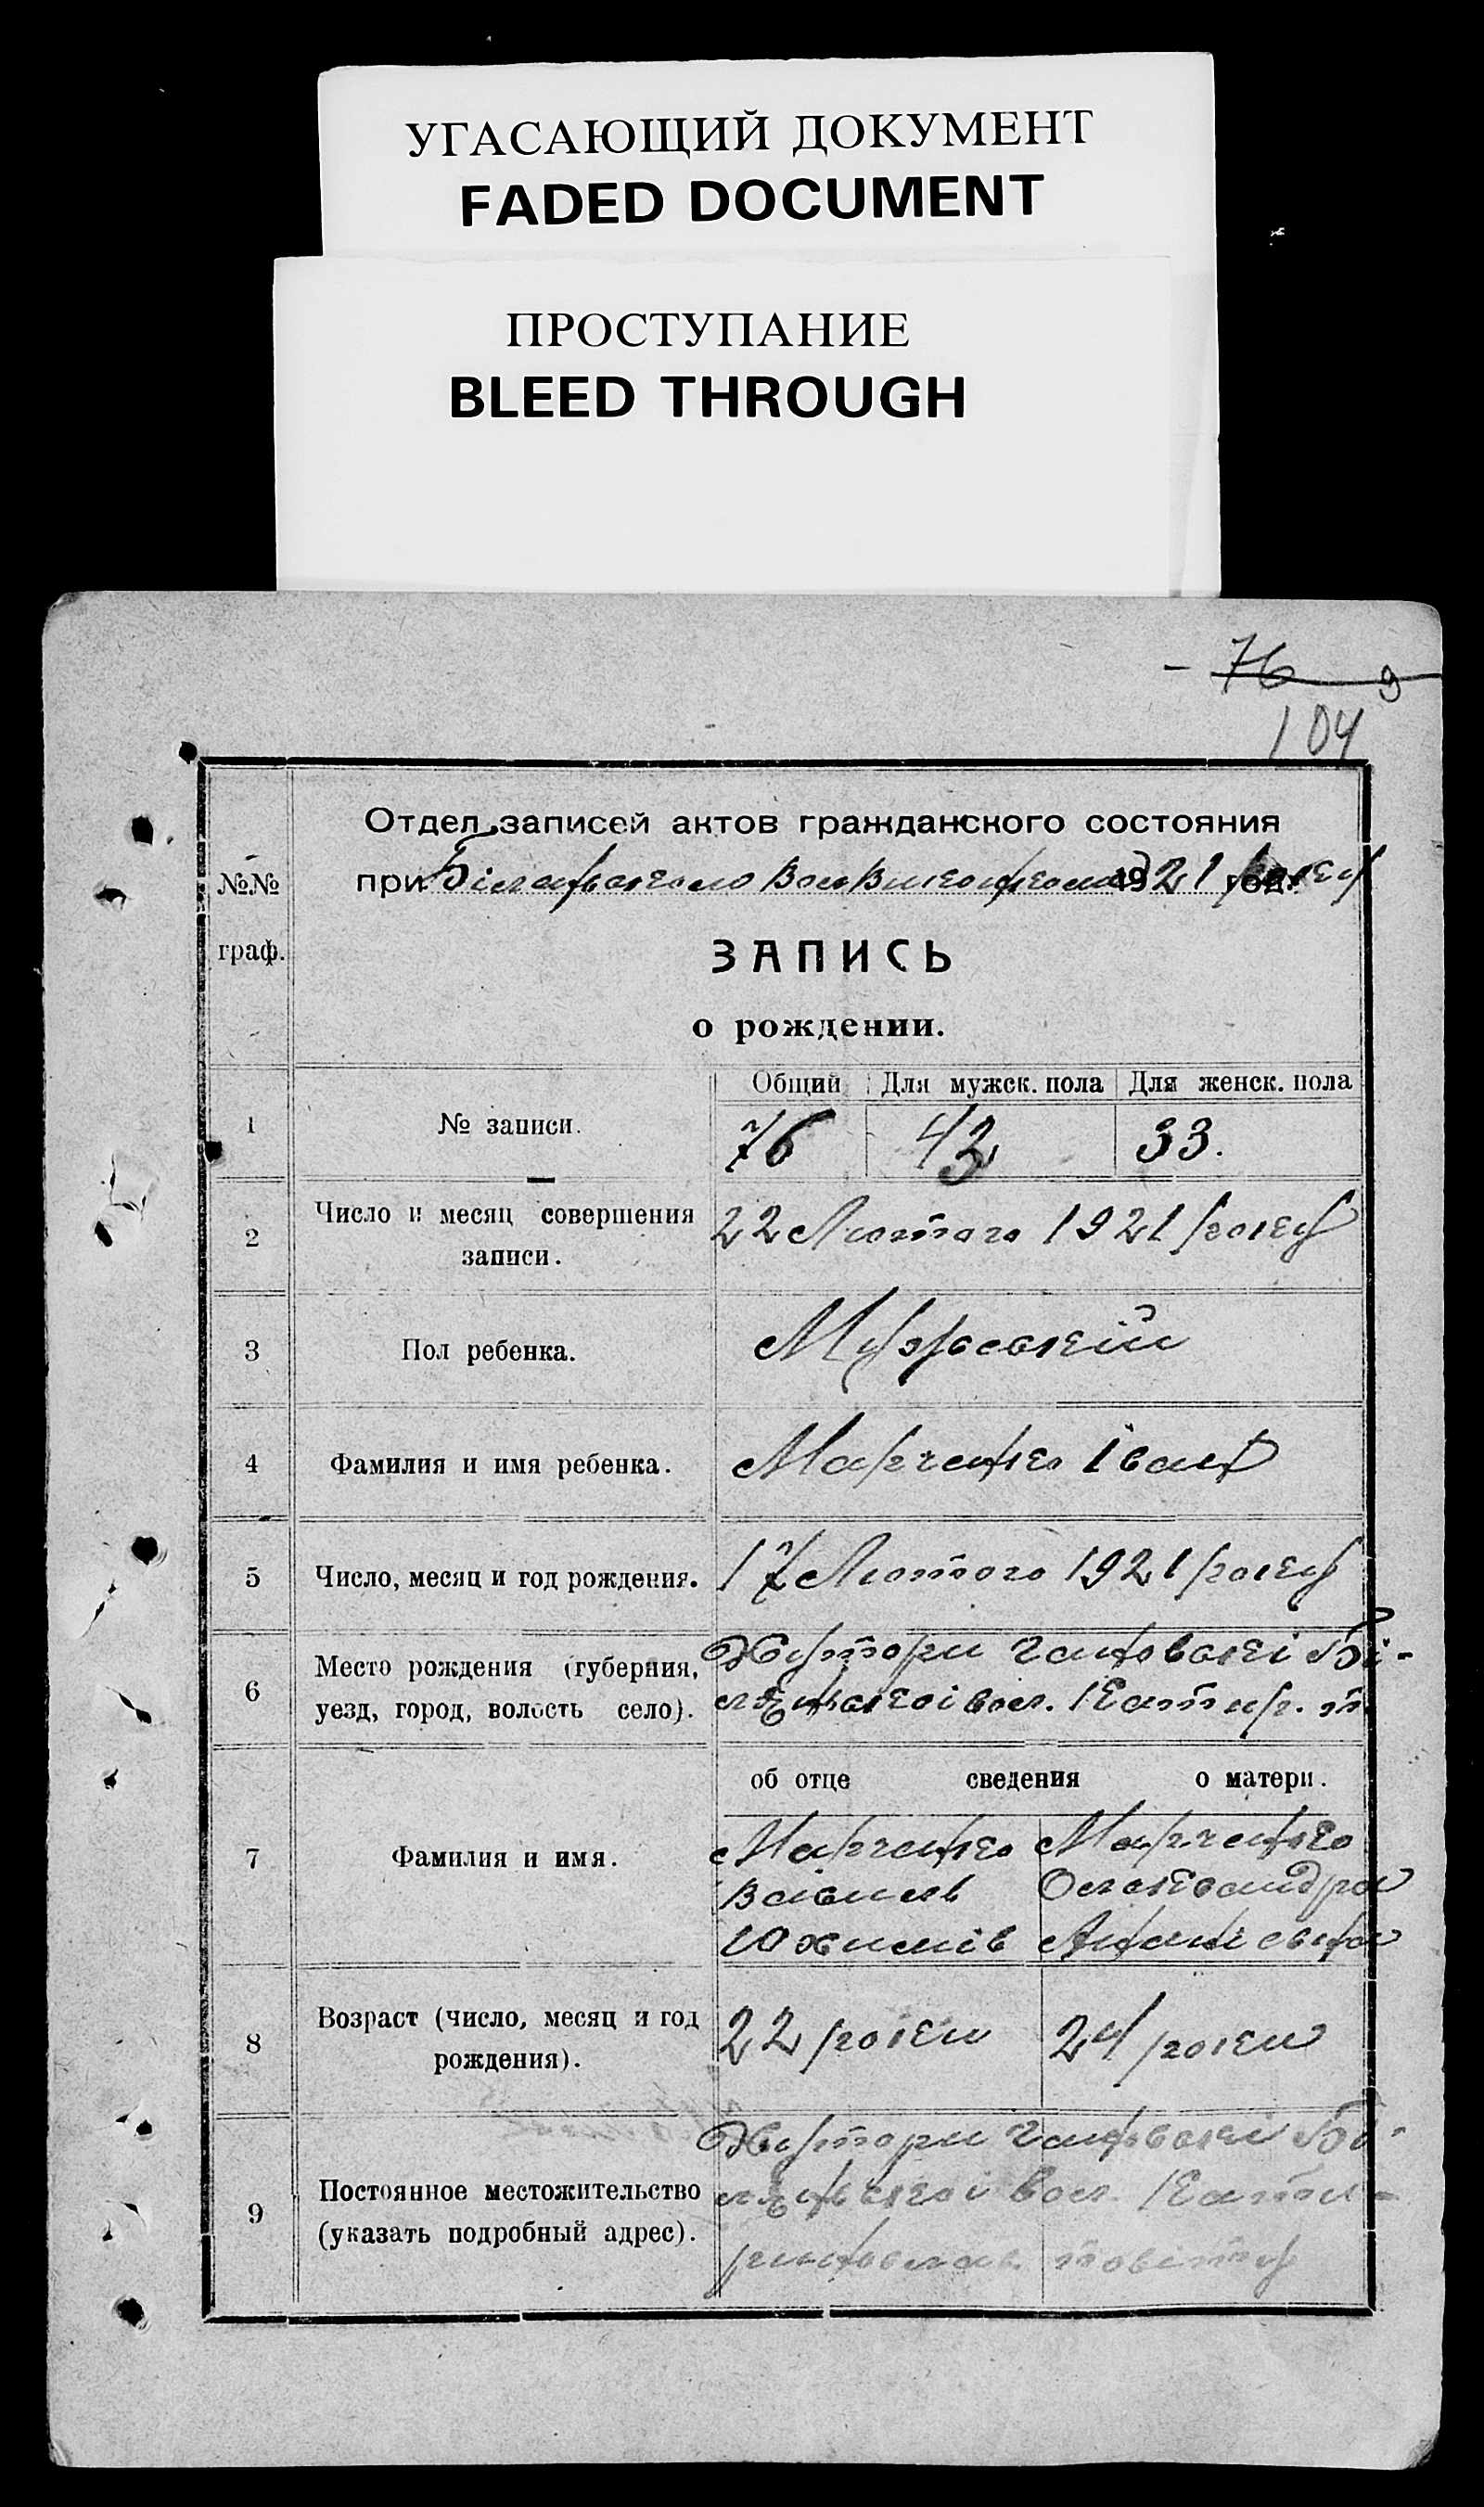 УГАСАЮЩИЙ ДОКУМЕНТ
FADED DOCUMENT
ПРОСТУПАНИЕ
BLEED THROUGH
76 9
104
Отдел записей актов гражданского состояния
№№ при 1921 року
граф.
ЗАПИСЬ
о рождении.
Общий Для мужск. пола Для женск. пола
1 № записи. 76 43 33.
2 Число и месяц совершения записи. 22 Лютого 1921 року
3 Пол ребенка. Мужський
4 Фамилия и имя ребенка. Марченко Іван
5 Число, месяц и год рождения. 17 Лютого 1921 року
6 Место рождения (губерния, Хутори
уезд, город, волость село). вол. Катир. п.
об отце сведения о матери.
7 Фамилия и имя. Марченко Марченко
Василь Олександра
Юхимів
8 Возраст (число, месяц и год рождения). 22 роки 24 роки
9 Хутори
Постоянное местожительство вол. Кати-
(указать подробный адрес).
ринослав. повіту